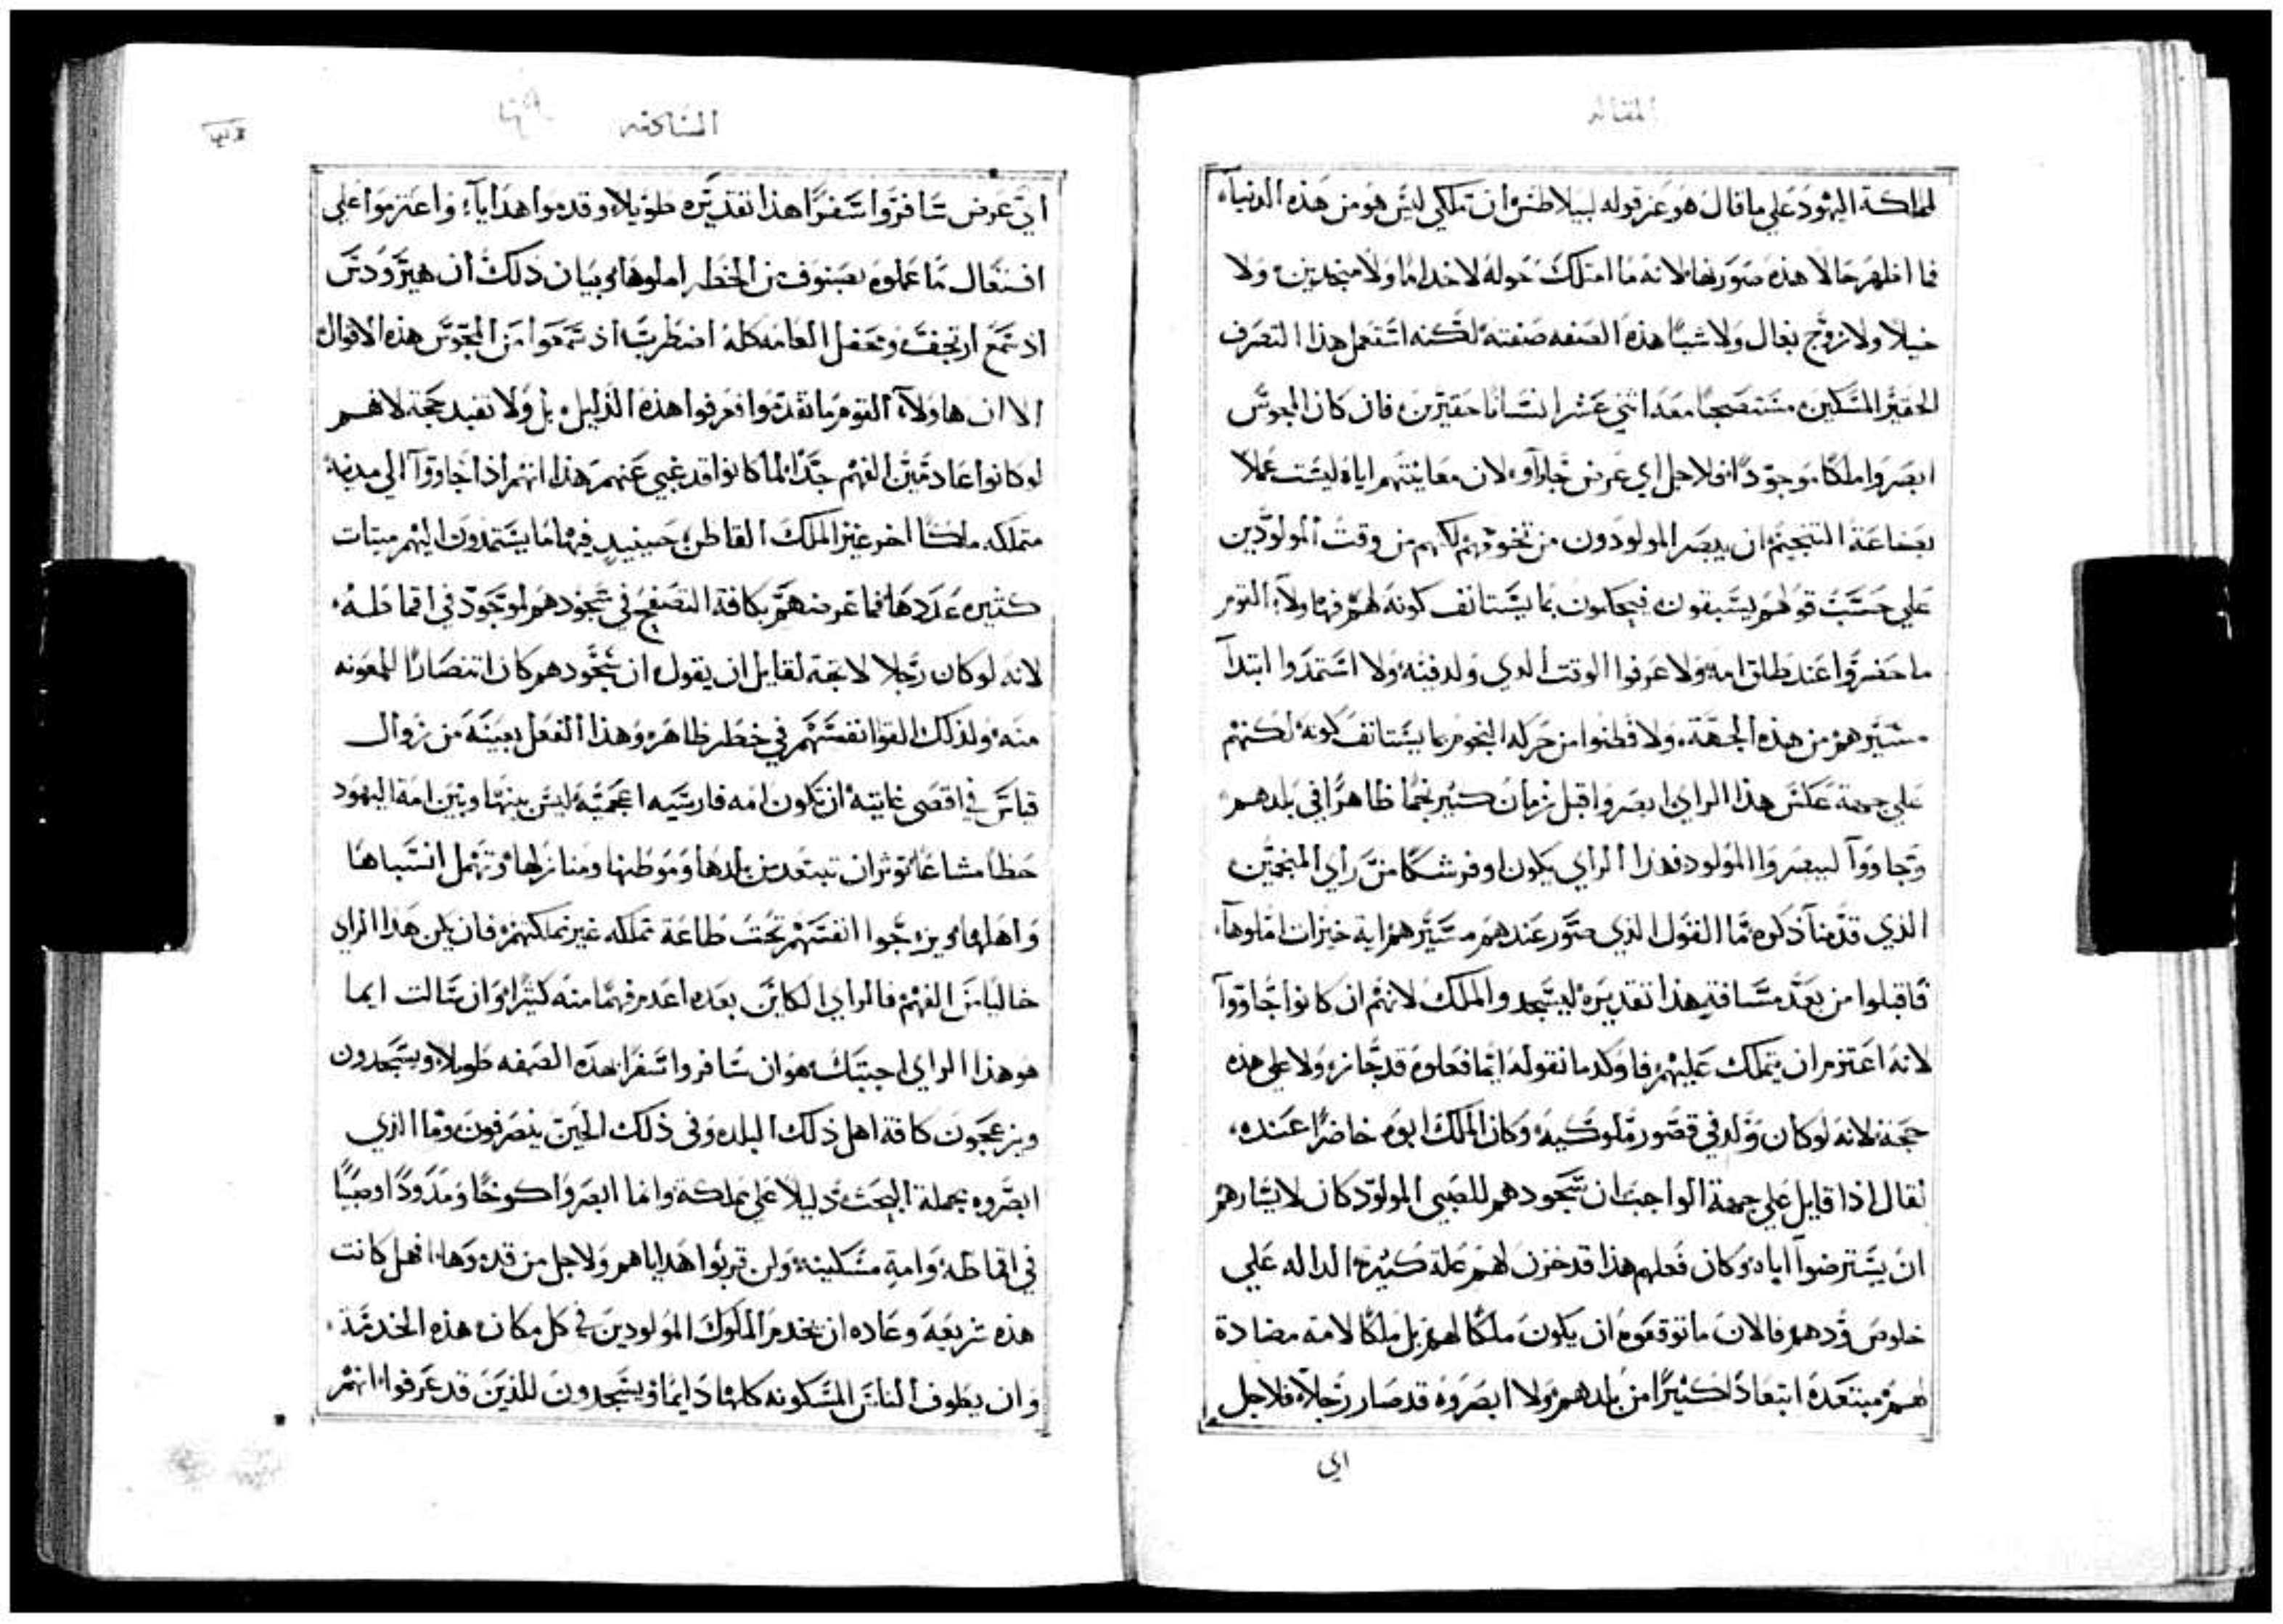 المقاله
لمملكة اليهود علي ما قال هو عن قوله لبيلاطس ان تملكي ليس هو من هذه الدنياء
فما اظهر حالا هذه صورتها لانه ما امتلك حوله لا خداما ولا منجدين ولا
خيلا ولا زوج بغال ولا شيا هذه الصفه صفته لكنه استعمل هذا التصرف
الحقير المسكين مستصحبا معه اثني عشر انسانا حقيرين فان كان المجوس
ابصروا ملكا موجودا فلاجل اي غرض جاوآ لان معاينتهم اياه ليست عملا
بصناعة التنجيم ان يبصر المولودون من نجومهم لكنهم من وقت المولودين
علي حسب قولهم يسبقون فيحكمون بما يستانف كونه لهم فهاولآ القوم
ما حضروا عند طلق امه ولا عرفوا الوقت الدي ولد فيه ولا استمدوا ابتدآ
مسيرهم من هذه الجهة ولا فطنوا من حركة النجوم بما يستانف كونه لكنهم
علي جهة عكس هذا الراي ابصروا قبل زمان كثير نجما ظاهرا في بلدهم
وجاووآ ليبصروا المولود فهذا الراي يكون اوفر شكا من راي المنجمين
الذي قدمنا ذكره فما القول الذي صور عندهم مسيرهم اية خيرات املوها
فاقبلوا من بعد مسافة هذا تقديره ليسجدوا لملك لانهم ان كانوا جاووآ
لانه اعتزم ان يتملك عليهم فاوكد ما نقوله ايما فعلوه قد جاز ولا علي هذه
حجة لانه لو كان ولد في قصور ملوكيه وكان الملك ابوه حاضرا عنده
لقال اذا قايل علي جهة الواجب ان سجودهم للصبي المولود كان لايثارهم
ان يسترضوآ اباه وكان فعلهم هذا قد خزن لهم علة كبيرة الداله علي
خلوص ودهم فالان ما توقعوه ان يكون ملكا لهم بل ملكا لامة مضادة
لهم مبتعدة ابتعادا كثيرا من بلدهم ولا ابصروه قد صار رجلا فلاجل
اي
السادسه
اي غرض سافروا سفرا هذا تقديره طويلا وقدموا هدايآ واعتزموا علي
افتعال ما عملوه بصنوف من الخطر املوها وبيان ذلك ان هيرودس
اذ سمع ارتجف ومحفل العامه كله اضطرب اذ سمعوا من المجوس هذه الاقوال
الا ان هاولآ القوم ما تقدموا فعرفوا هذه الدليل بل ولا تفيد حجة لانهم
لو كانوا عادمين الفهم جدا لما كانوا قد غبي عنهم هذا انهم اذا جاووآ الي مدينة
متملكه ملكا اخر غير الملك القاطن حينيد فيها ما يستمدون اليهم ميتات
كثيره عددها فما غرضهم بكافة التصفح في سجودهم لموجود في اقماطه
لانه لو كان رجلا لاتجه لقايل ان يقول ان سجودهم كان انتصارا للمعونه
منه ولذلك القوا انفسهم في خطر ظاهر وهذا الفعل بعينه من زوال
قياس في اقصى غايته ان تكون امه فارسيه اعجميه ليس بينها وبين امة اليهود
حظا مشاعا توثر ان تبتعد من بلدها وموطنها ومنازلها وتهمل انسباها
واهلها ويزجوا انفسهم تحت طاعة تملكه غير تملكهم فان يكن هذا الراي
خاليا من الفهم فالراي الكاين بعده اعدم فهما منه كثيرا وان سالت ايما
هو هذا الراي اجبتك هو ان سافروا سفرا هذه الصفه طويلا ويسجدون
ويزعجون كافة اهل ذلك البلد وفي ذلك الحين ينصرفون وما الذي
ابصروه بجملة البحث دليلا علي مملكة وانما ابصروا كوخا ومذودا وصبيا
في اقماطه وامه مسكينه ولمن قربوا هداياهم ولاجل من قدموها افهل كانت
هذه شريعة وعاده ان يخدم الملوك المولودين في كل مكان هذه الخدمة
وان يطوف الناس المسكونه كلها دايما ويسجدون للذين قد عرفوا انهم